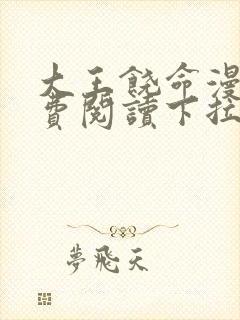 大王饶命漫
費閱讀下拉
夢飛天